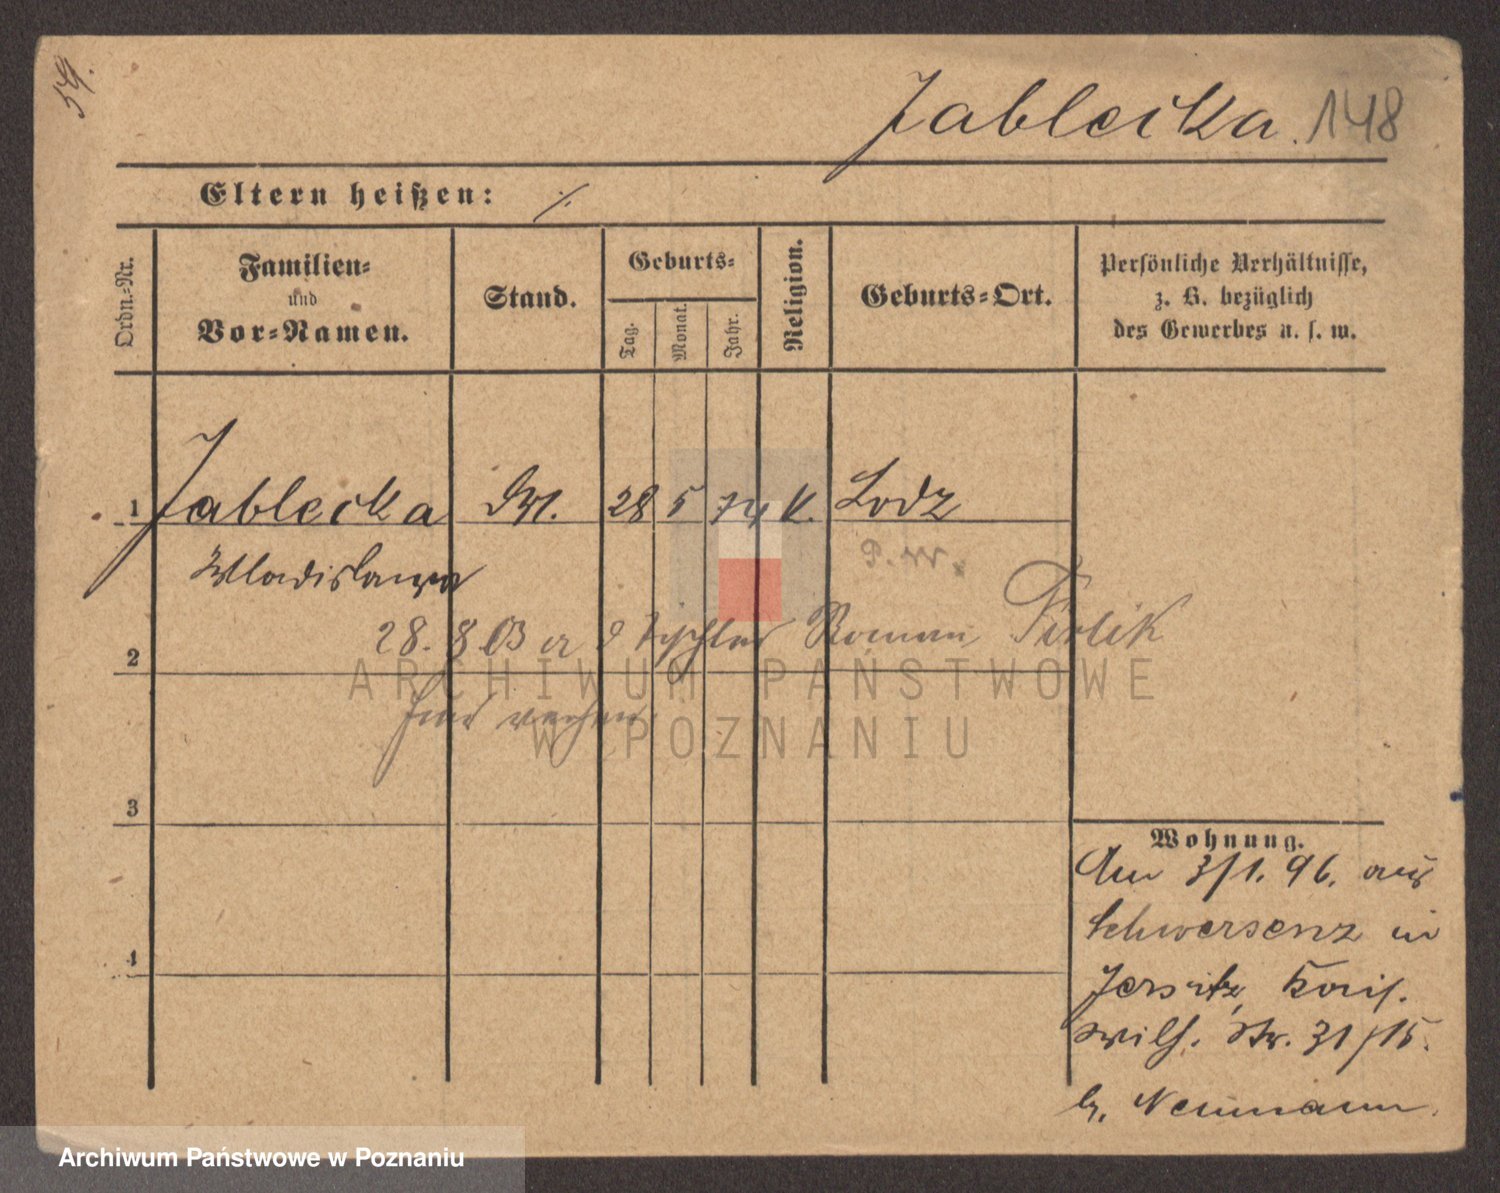 54.
Jablecka. 148
Eltern heißen: ∕.
Ordn.-Nr.
Familien-
und
Vor-Namen.
Stand.
Geburts-
Tag.
Monat.
Jahr.
Religion.
Geburts-Ort.
Persönliche Verhältnisse,
z. B. bezüglich
des Gewerbes u. s. w.
1 Jablecka 28 5 74 k. Lodz
Wladislawa P. W.
28. 8. 03 Tischler Roman Firlik
2
3
4
Wohnung.
Am 3/1. 96. aus
Schwersenz in
Jersitz,
Wilh. Str. 31/15.
b. Neumann.
ARCHIWUM PAŃSTWOWE
W POZNANIU
Archiwum Państwowe w Poznaniu